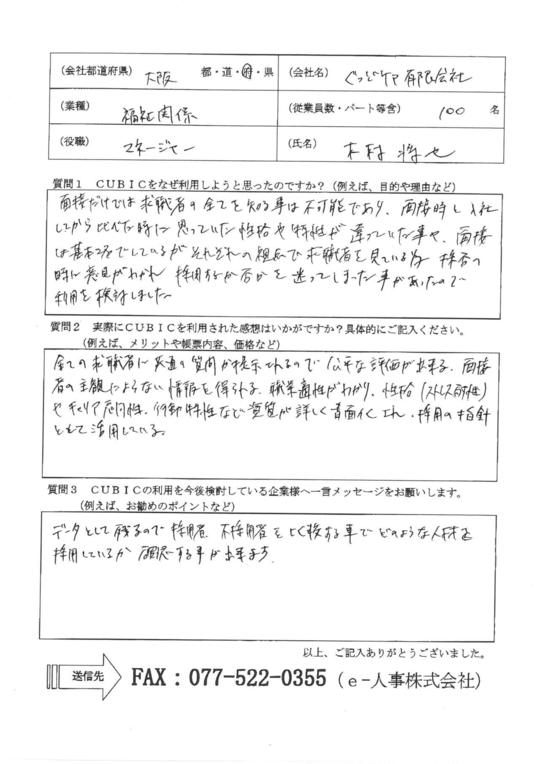 （会社都道府県） 大阪 都・道・府・県
（会社名） ぐっどケア有限会社
（業種） 福祉関係
（従業員数・パート等含） 100 名
（役職） マネージャー
（氏名） 木村 将也
質問１ ＣＵＢＩＣをなぜ利用しようと思ったのですか？（例えば、目的や理由など）
面接だけでは求職者の全てを知る事は不可能であり、面接時と入社
してから比べた時に思っていた性格や特性が違っていた事や、面接
は基本2名でしているがそれぞれの観点で求職者を見ている為 採否の
時に意見がわかれ 採用するか否かを迷ってしまった事があったので
利用を検討しました
質問２ 実際にＣＵＢＩＣを利用された感想はいかがですか？具体的にご記入ください。
（例えば、メリットや帳票内容、価格など）
全ての求職者に共通の質問が提示されるので公平な評価が出来る。面接
者の主観によらない情報を得られる。職業適性がわかり、性格（ストレス耐性）
やキャリア志向性、行動特性など資質が詳しく書面化され、採用の指針
として活用している。
質問３ ＣＵＢＩＣの利用を今後検討している企業様へ一言メッセージをお願いします。
（例えば、お勧めのポイントなど）
データとして残るので採用者、不採用者を比較する事でどのような人材を
採用しているか確認する事が出来ます。
以上、ご記入ありがとうございました。
送信先 FAX：077-522-0355（ｅ－人事株式会社）